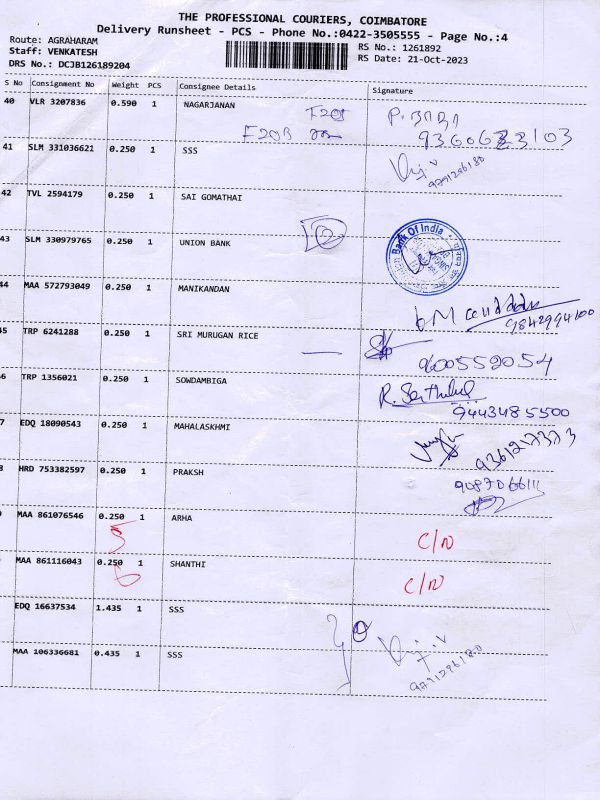 THE PROFESSIONAL COURIERS, COIMBATORE
Delivery Runsheet - PCS - Phone No.:0422-3505555 - Page No.:4
Route: AGRAHARAM
Staff: VENKATESH
DRS No.: DCJB126189204
RS No.: 1261892
RS Date: 21-Oct-2023
S No Consignment No Weight PCS Consignee Details Signature
40 VLR 3207836 0.590 1 NAGARJANAN
9360623103
41 SLM 331036621 0.250 1 SSS
9791296180
42 TVL 2594179 0.250 1 SAI GOMATHAI
43 SLM 330979765 0.250 1 UNION BANK
Bank Of India
44 MAA 572793049 0.250 1 MANIKANDAN
9842994100
45 TRP 6241288 0.250 1 SRI MURUGAN RICE
9600552054
46 TRP 1356021 0.250 1 SOWDAMBIGA
9443485500
7 EDQ 18090543 0.250 1 MAHALASKHMI
9361217373
8 HRD 753382597 0.250 1 PRAKSH
9087066111
MAA 861076546 0.250 1 ARHA
5
C/N
MAA 861116043 0.250 1 SHANTHI
6
C/N
EDQ 16637534 1.435 1 SSS
MAA 106336681 0.435 1 SSS
9791296180